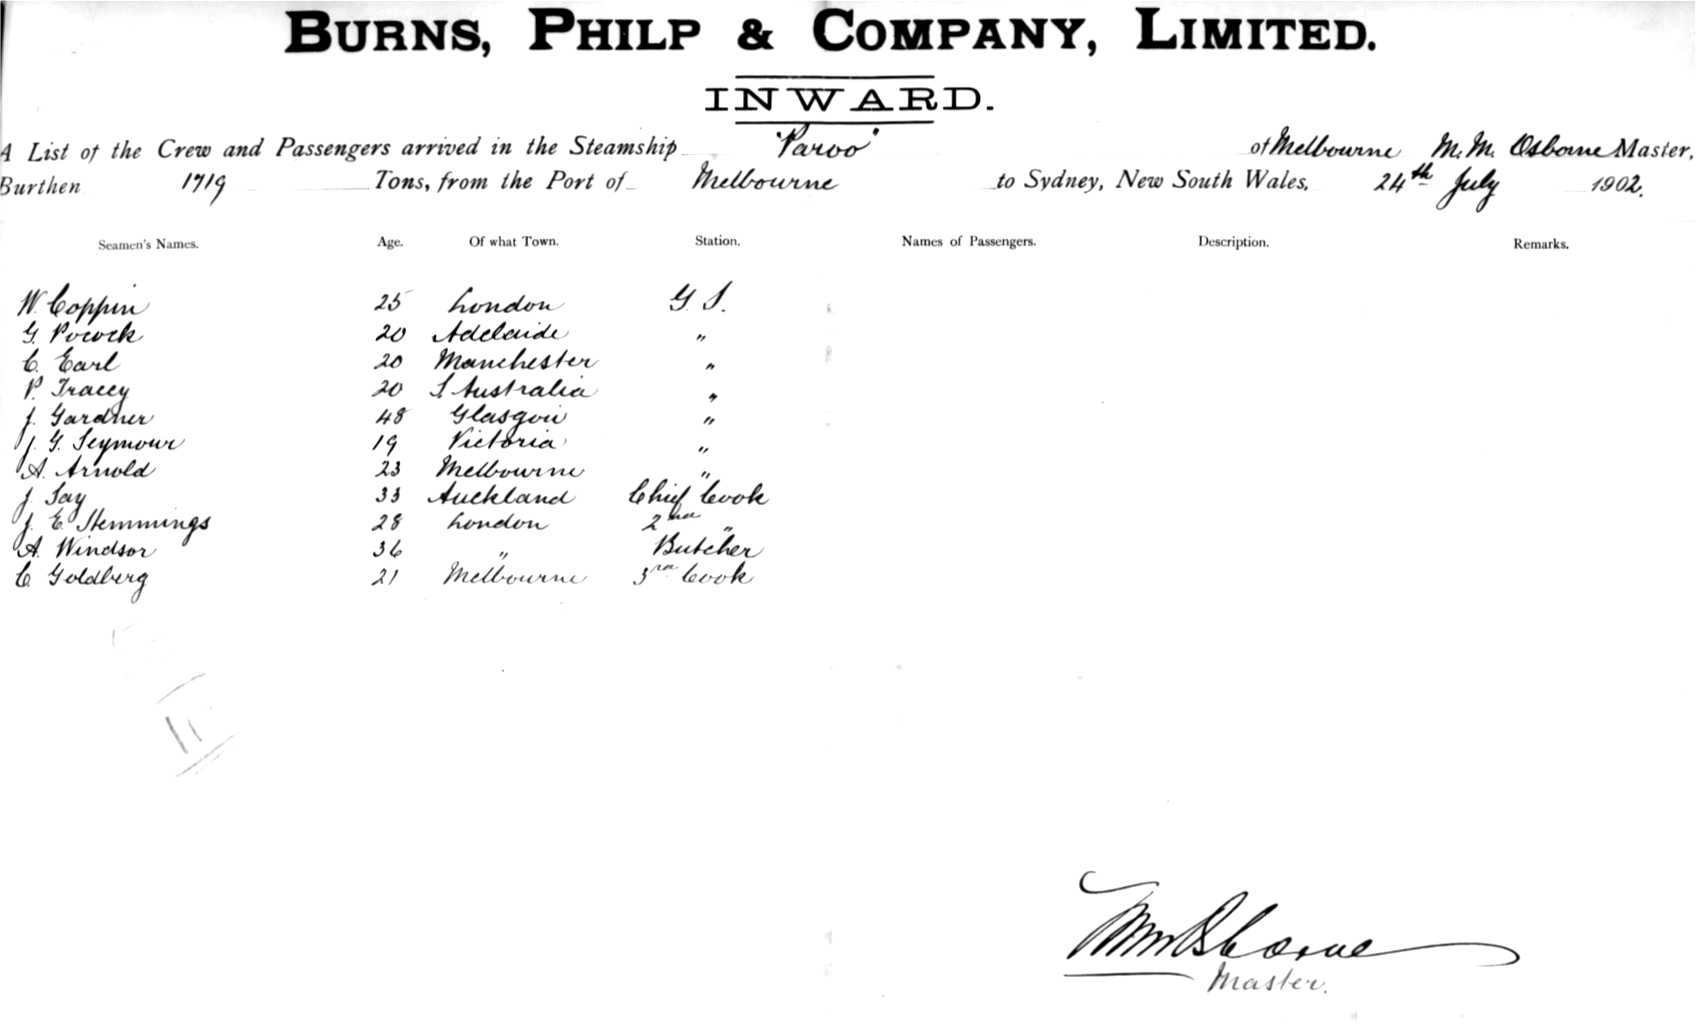 BURNS, PHILP & COMPANY, LIMITED.
INWARD.
A List of the Crew and Passengers arrived in the Steamship "Paroo" of Melbourne M. M. Osborne Master,
Burthen 1719 Tons, from the Port of Melbourne to Sydney, New South Wales, 24th July 1902.
Seamen's Names. Age. Of what Town. Station. Names of Passengers. Description. Remarks.
W. Coppin 25 London G. S.
G. Pocock 20 Adelaide "
C. Earl 20 Manchester "
P. Tracey 20 S Australia "
J. Gardner 48 Glasgow "
J. G. Seymour 19 Victoria "
A. Arnold 23 Melbourne "
J. Say 33 Auckland Chief Cook
J. E. Stemmings 28 London 2nd "
A. Windsor 36 " Butcher
C. Goldberg 21 Melbourne 3rd Cook
11
MM Osborne
Master.